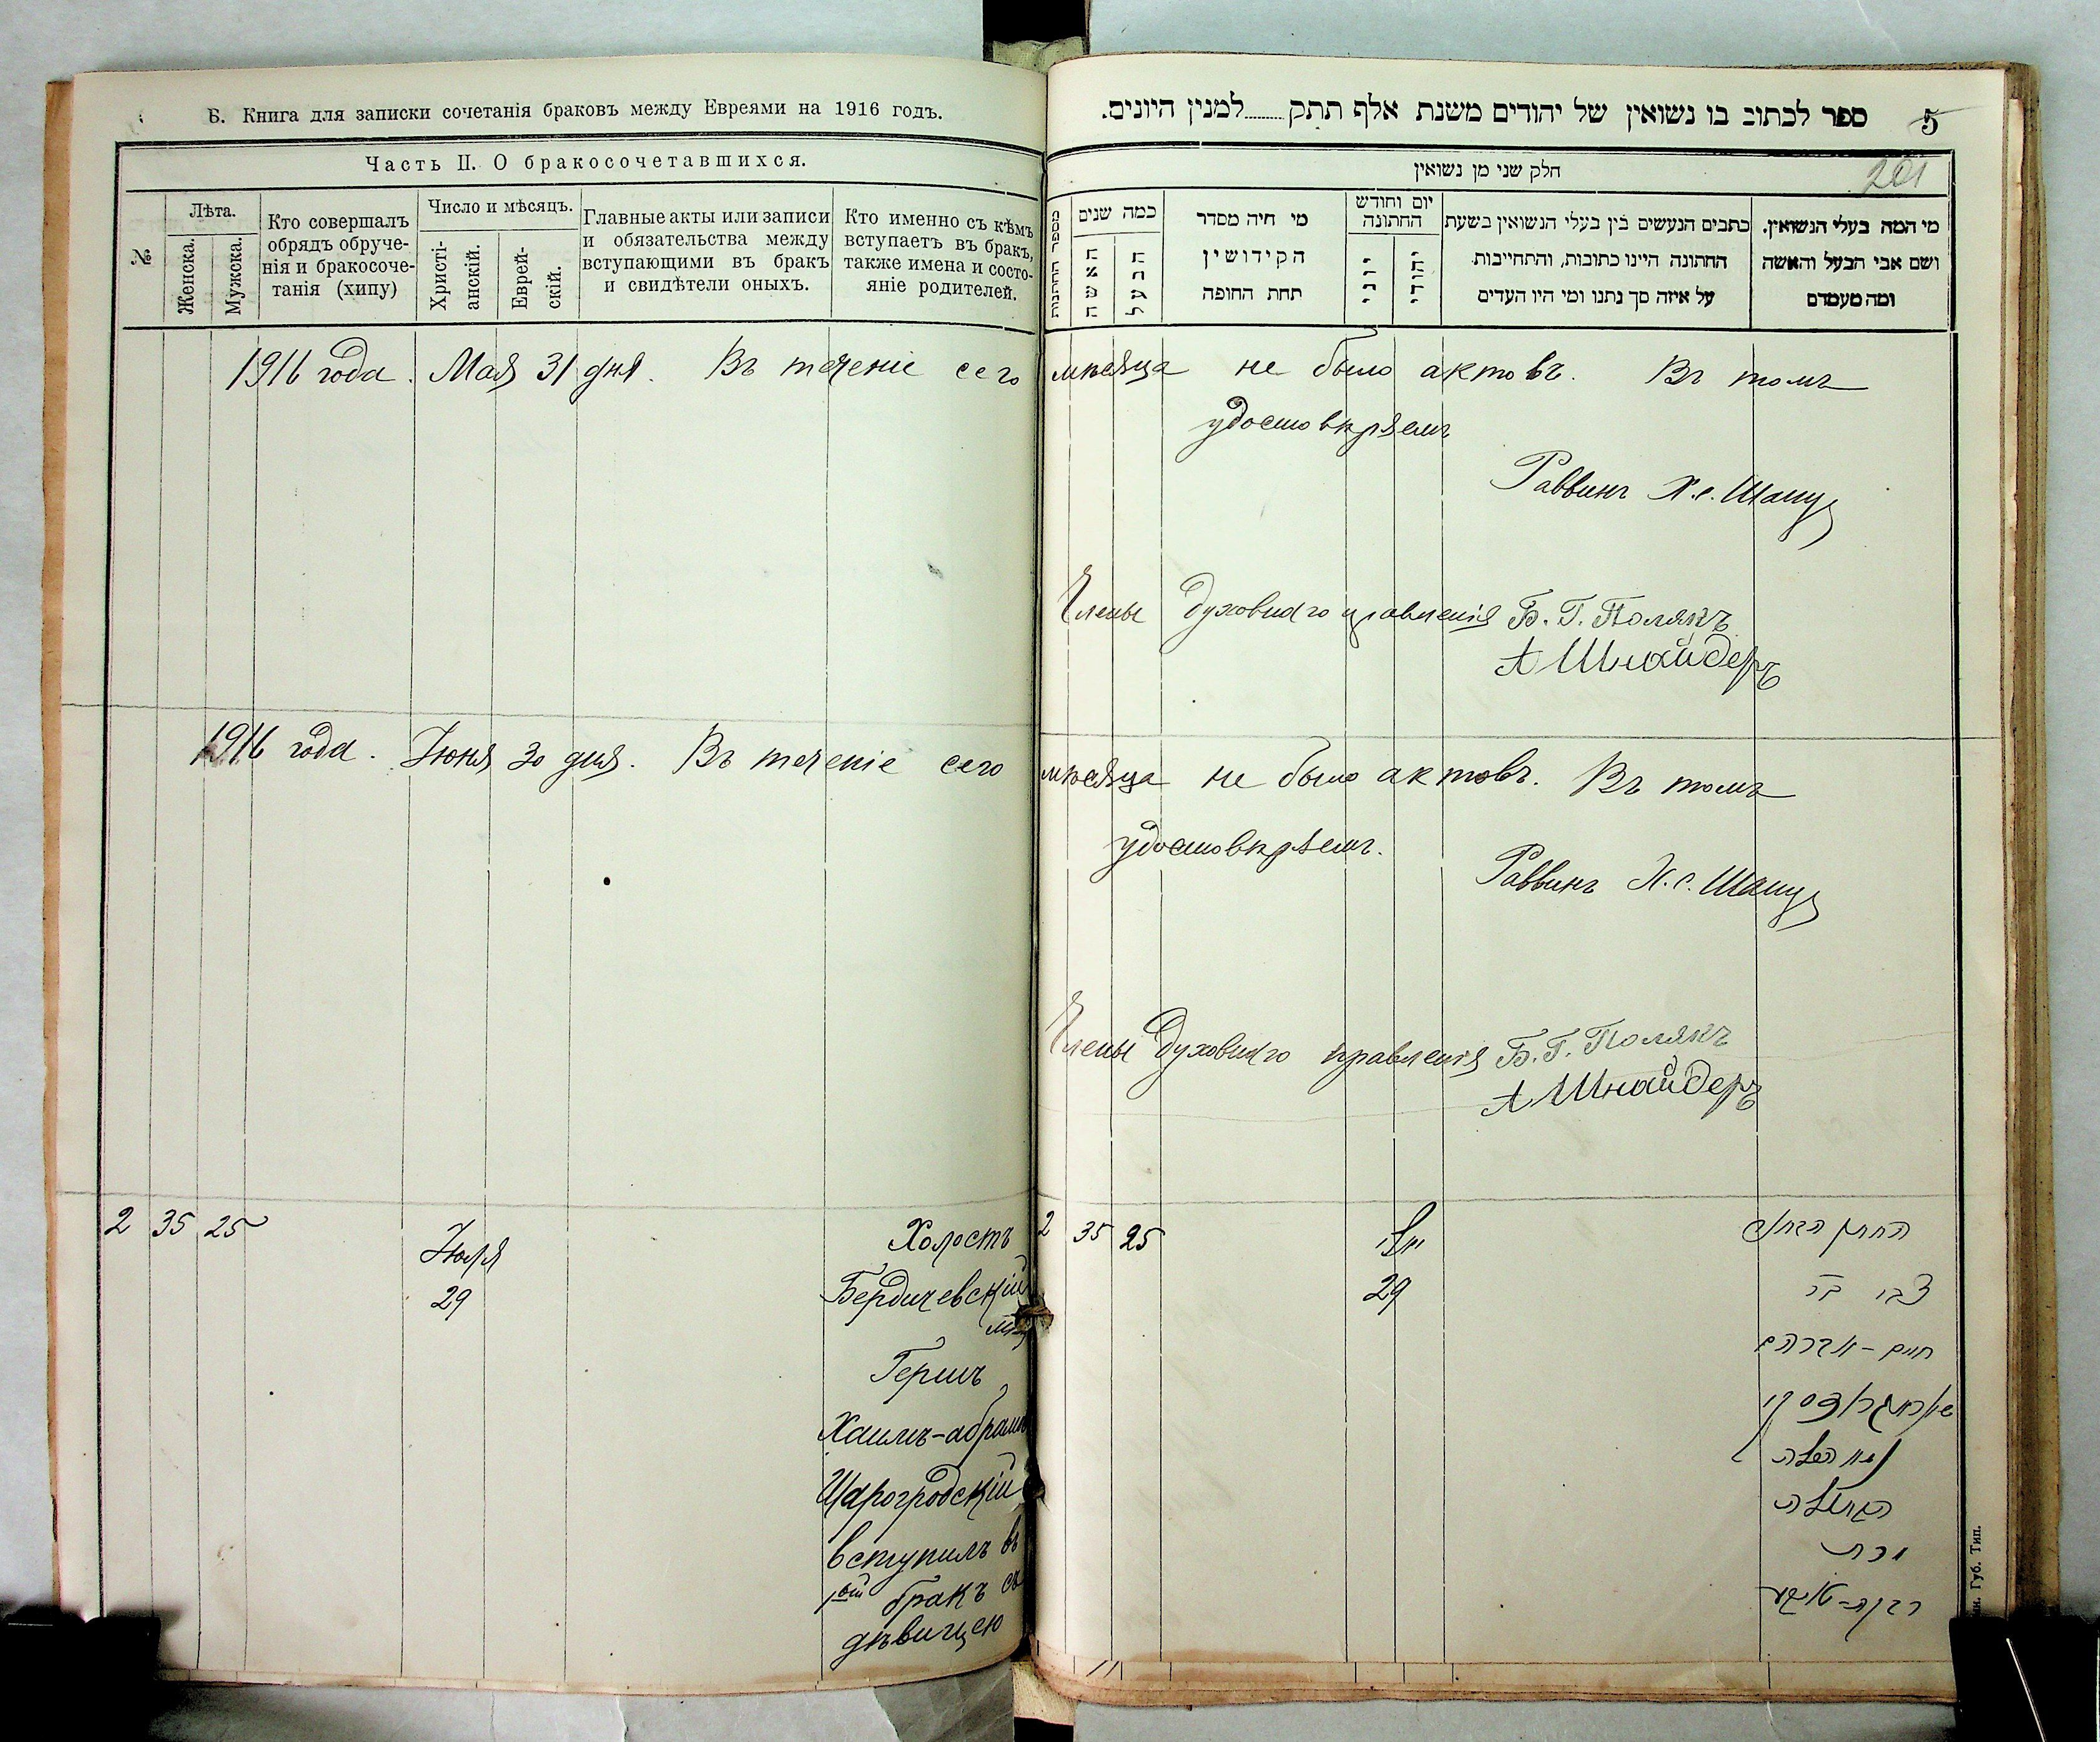 Б. Книга для записки сочетанія браковъ между Евреями на 1916 годъ.
Часть II. О бракосочетавшихся.
№
Лѣта.
Женска.
Мужска.
Кто совершалъ
обрядъ обруче-
нія и бракосоче-
танія (хипу)
Число и мѣсяцъ.
Христі-
анскій.
Еврей-
скій.
Главные акты или записи
и обязательства между
вступающими въ бракъ
и свидѣтели оныхъ.
Кто именно съ кѣмъ
вступаетъ въ бракъ,
также имена и состо-
яніе родителей.
5
ספר לכתוב בו נשואין של יהודים משנת אלף תתק........למנין היונים.
201
חלק שני מן נשואין
מספר החתונות
כמה שנים
האשה
הבעל
מי חיה מסדר
הקידושין
תחת החופה
יום וחודש
החתונה
יוני
יהודי
כתבים הנעשים בין בעלי הנשואין בשעת
החתונה היינו כתובות, והתחייבות
על איזה סך נתנו ומי היו העדים
מי המה בעלי הנשואין.
ושם אבי הבעל והאשה
ומה מעמדם
1916 года. Мая 31 дня. Въ теченіе сего мѣсяца не было актовъ. Въ томъ
удостовѣряемъ
Раввинъ Х.С. Шапу
Члены Духовнаго правленія Б. Г. Полякъ
А Шнайдеръ
1916 года. Іюня 30 дня. Въ теченіе сего мѣсяца не было актовъ. Въ томъ
удостовѣряемъ.
Раввинъ Х.С. Шапу
Члены Духовнаго правленія Б. Г. Полякъ
А Шнайдеръ
2 35 25
Іюля
29
Холостъ
Бердичевскій
мѣщ
Гершъ
Хаимъ-Абрамъ
Шарогродскій
вступилъ въ
1ый бракъ съ
дѣвицею
2 35 25
יולי
29
החתן הבחור
צבי בר
חיים-אברהם
שאראגראדסקי
עם הכלה
הבתולה
בת
רבקה-
Губ. Тип.